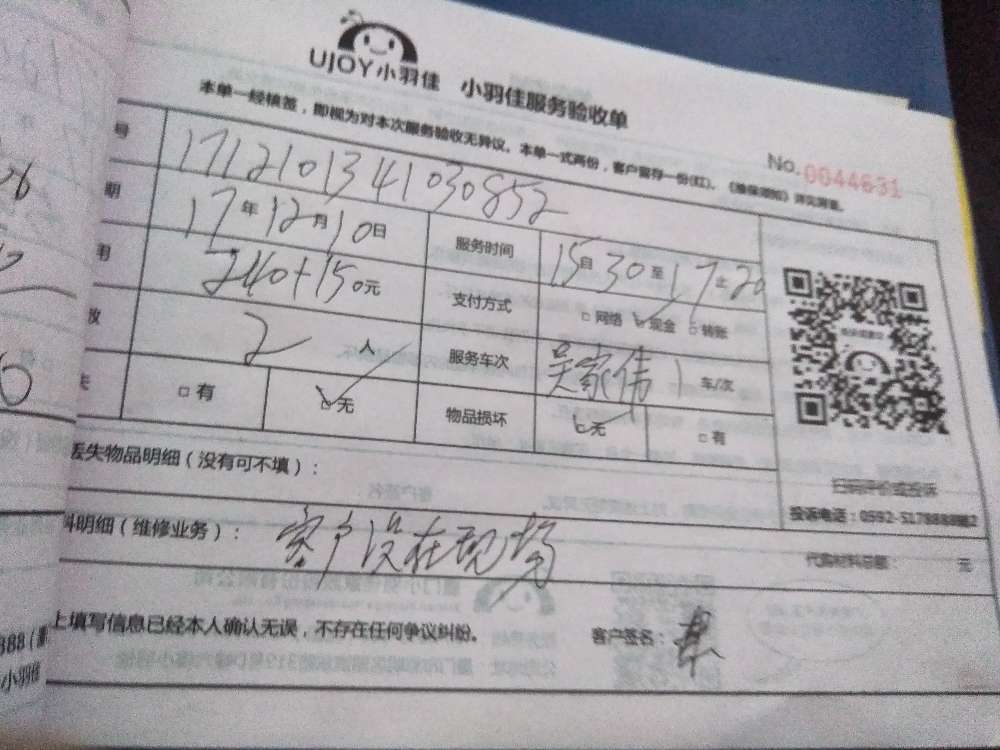 UJOY小羽佳 小羽佳服务验收单
本单一经核签，即视为对本次服务验收无异议。本单一式两份，客户留存一份(红)。
No.0044631
号 171210134103 0852
期 17年12月10日 服务时间 15自30至17止20
用 240+150元 支付方式 □网络 ☑现金 □转账
数 2人 服务车次 吴家伟 1 车/次
失 □有 ☑无 物品损坏 ☑无 □有
丢失物品明细（没有可不填）：
扫码评价或投诉
料明细（维修业务）： 客户没在现场
投诉电话：0592-5178888
元
上填写信息已经本人确认无误，不存在任何争议纠纷。 客户签名：
小羽佳